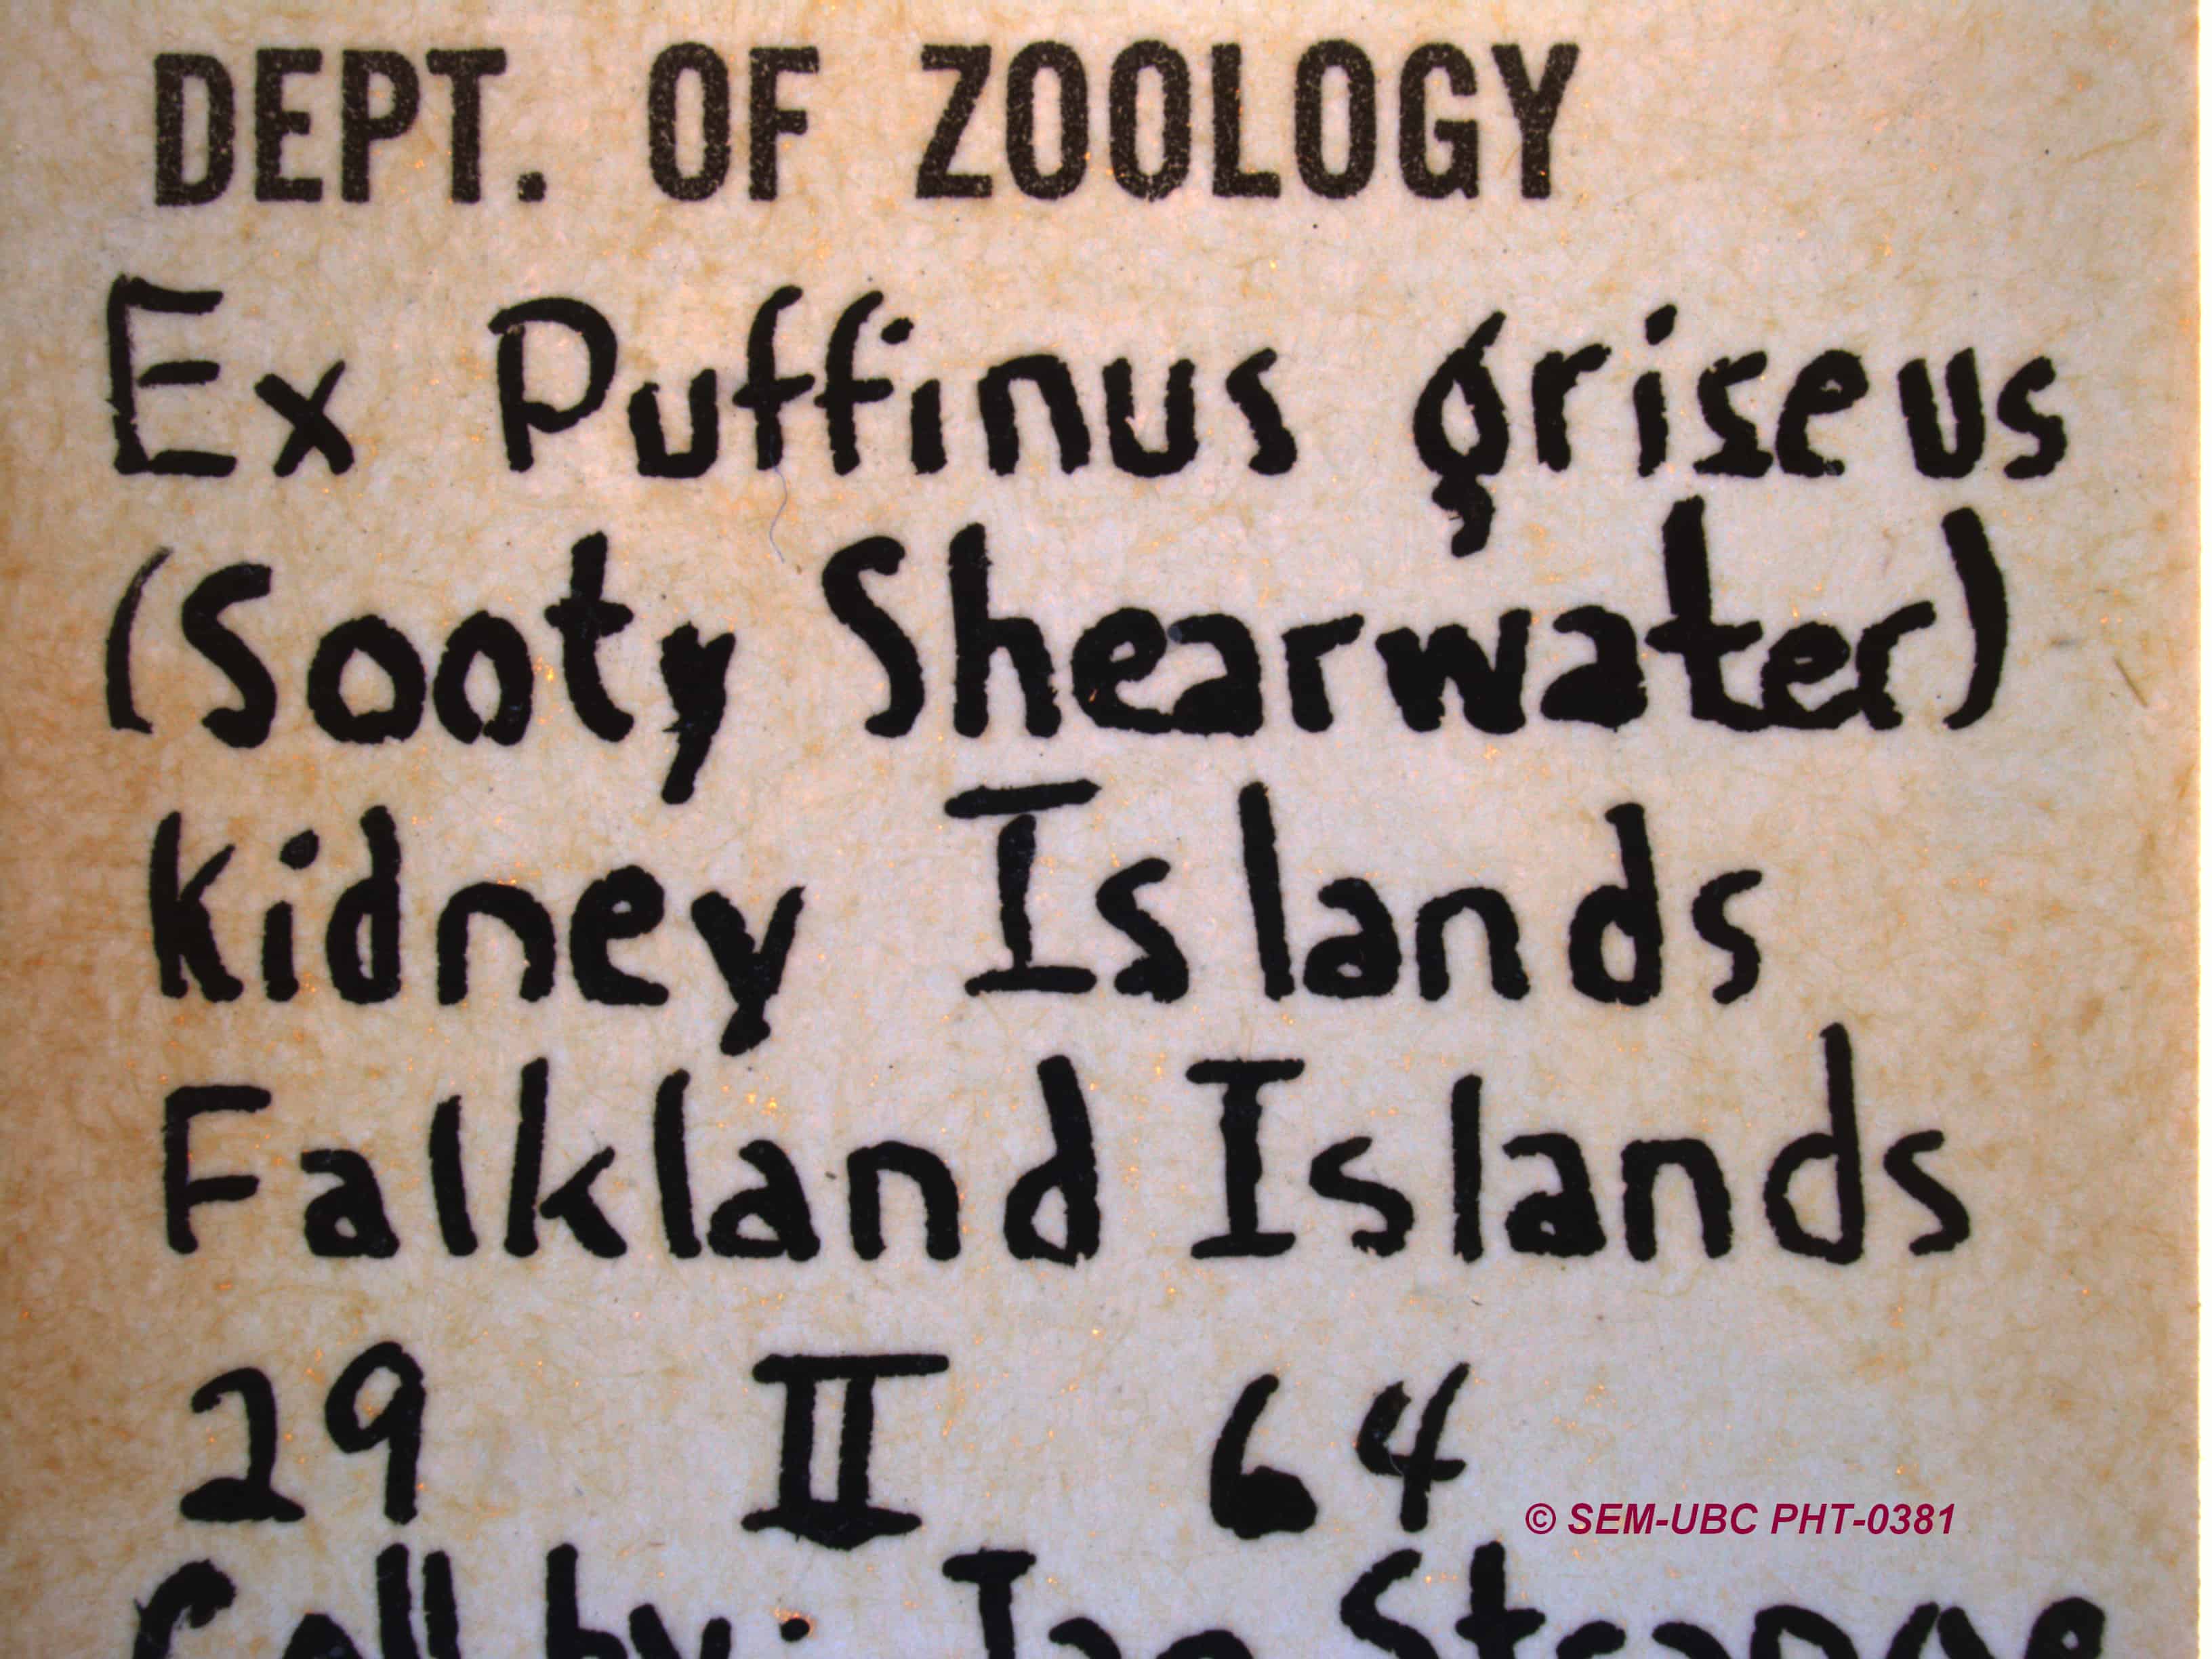 DEPT. OF ZOOLOGY
Ex Puffinus griseus
(Sooty Shearwater)
Kidney Islands
Falkland Islands
29 II 64
© SEM-UBC PHT-0381
Coll by: Ian Strange